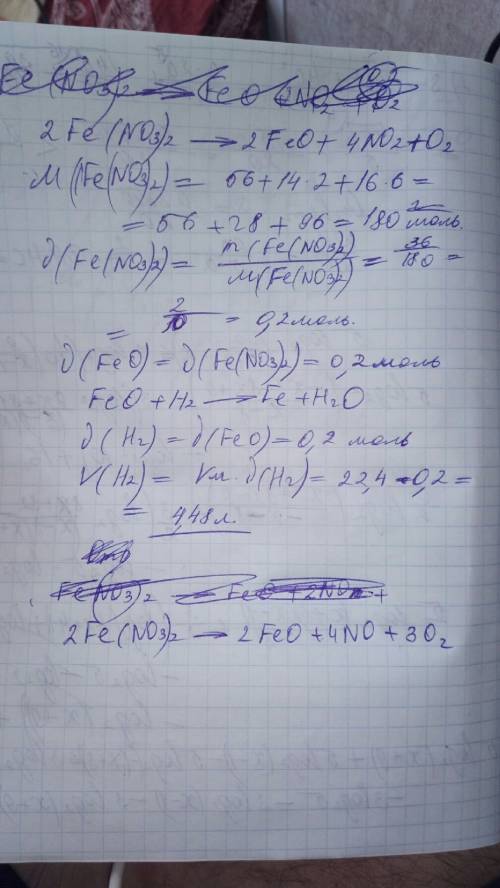 2Fe(NO3)2 → 2FeO + 4NO2 + O2
M(Fe(NO3)2) = 56+14·2+16·6 =
= 56 + 28 + 96 = 180 г/моль.
ϑ(Fe(NO3)2) = m(Fe(NO3)2)/M(Fe(NO3)2) = 36/180 =
= 2/10 = 0,2 моль.
ϑ(FeO) = ϑ(Fe(NO3)2) = 0,2 моль
FeO + H2 → Fe + H2O
ϑ(H2) = ϑ(FeO) = 0,2 моль
V(H2) = Vм · ϑ(H2) = 22,4 · 0,2 =
= 4,48 л.
2Fe(NO3)2 → 2FeO + 4NO + 3O2